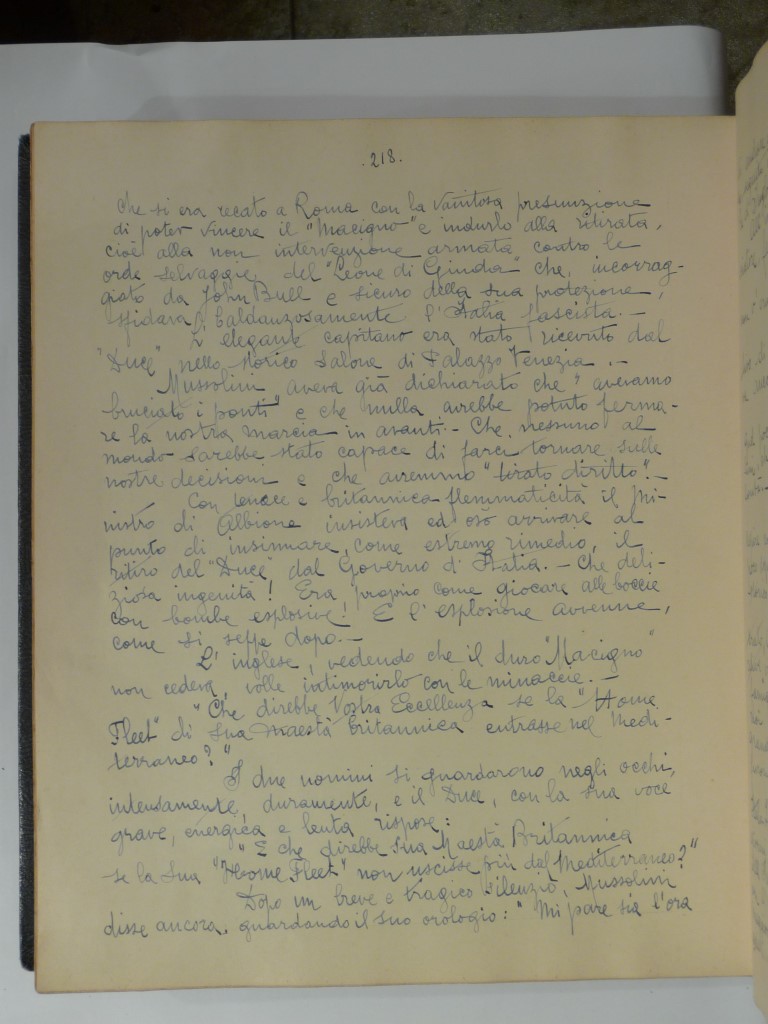 . 218.
che si era recato a Roma con la vanitosa presunzione
di poter vincere il "Macigno" e indurlo alla ritirata,
cioè alla non intervenzione armata contro le
orde selvagge del "Leone di Giuda" che, incorrag-
giato da John Bull e sicuro della sua protezione,
sfidava baldanzosamente l'Italia fascista. —
L'elegante capitano era stato ricevuto dal
"Duce" nello storico salone di Palazzo Venezia. —
Mussolini aveva già dichiarato che "avevamo
bruciato i ponti" e che nulla avrebbe potuto ferma-
re la nostra marcia in avanti. — Che nessuno al
mondo sarebbe stato capace di farci tornare sulle
nostre decisioni e che avremmo "tirato diritto". —
Con tenace e britannica flemmaticità il Mi-
nistro di Albione insisteva ed osò arrivare al
punto di insinuare, come estremo rimedio, il
ritiro del "Duce" dal Governo d'Italia. — Che deli-
ziosa ingenuità! Era proprio come giocare alle boccie
con bombe esplosive! E l'esplosione avvenne,
come si seppe dopo. —
L'inglese, vedendo che il duro "Macigno"
non cedeva, volle intimorirlo con le minaccie. —
"Che direbbe Vostra Eccellenza se la "Home
Fleet" di Sua Maestà britannica entrasse nel Medi-
terraneo?"
I due uomini si guardarono negli occhi,
intensamente, duramente, e il Duce, con la sua voce
grave, energica e lenta, rispose:
"E che direbbe Sua Maestà Britannica
se la Sua "Home Fleet" non uscisse più dal Mediterraneo?"
Dopo un breve e tragico silenzio, Mussolini
disse ancora, guardando il suo orologio: "Mi pare sia l'ora